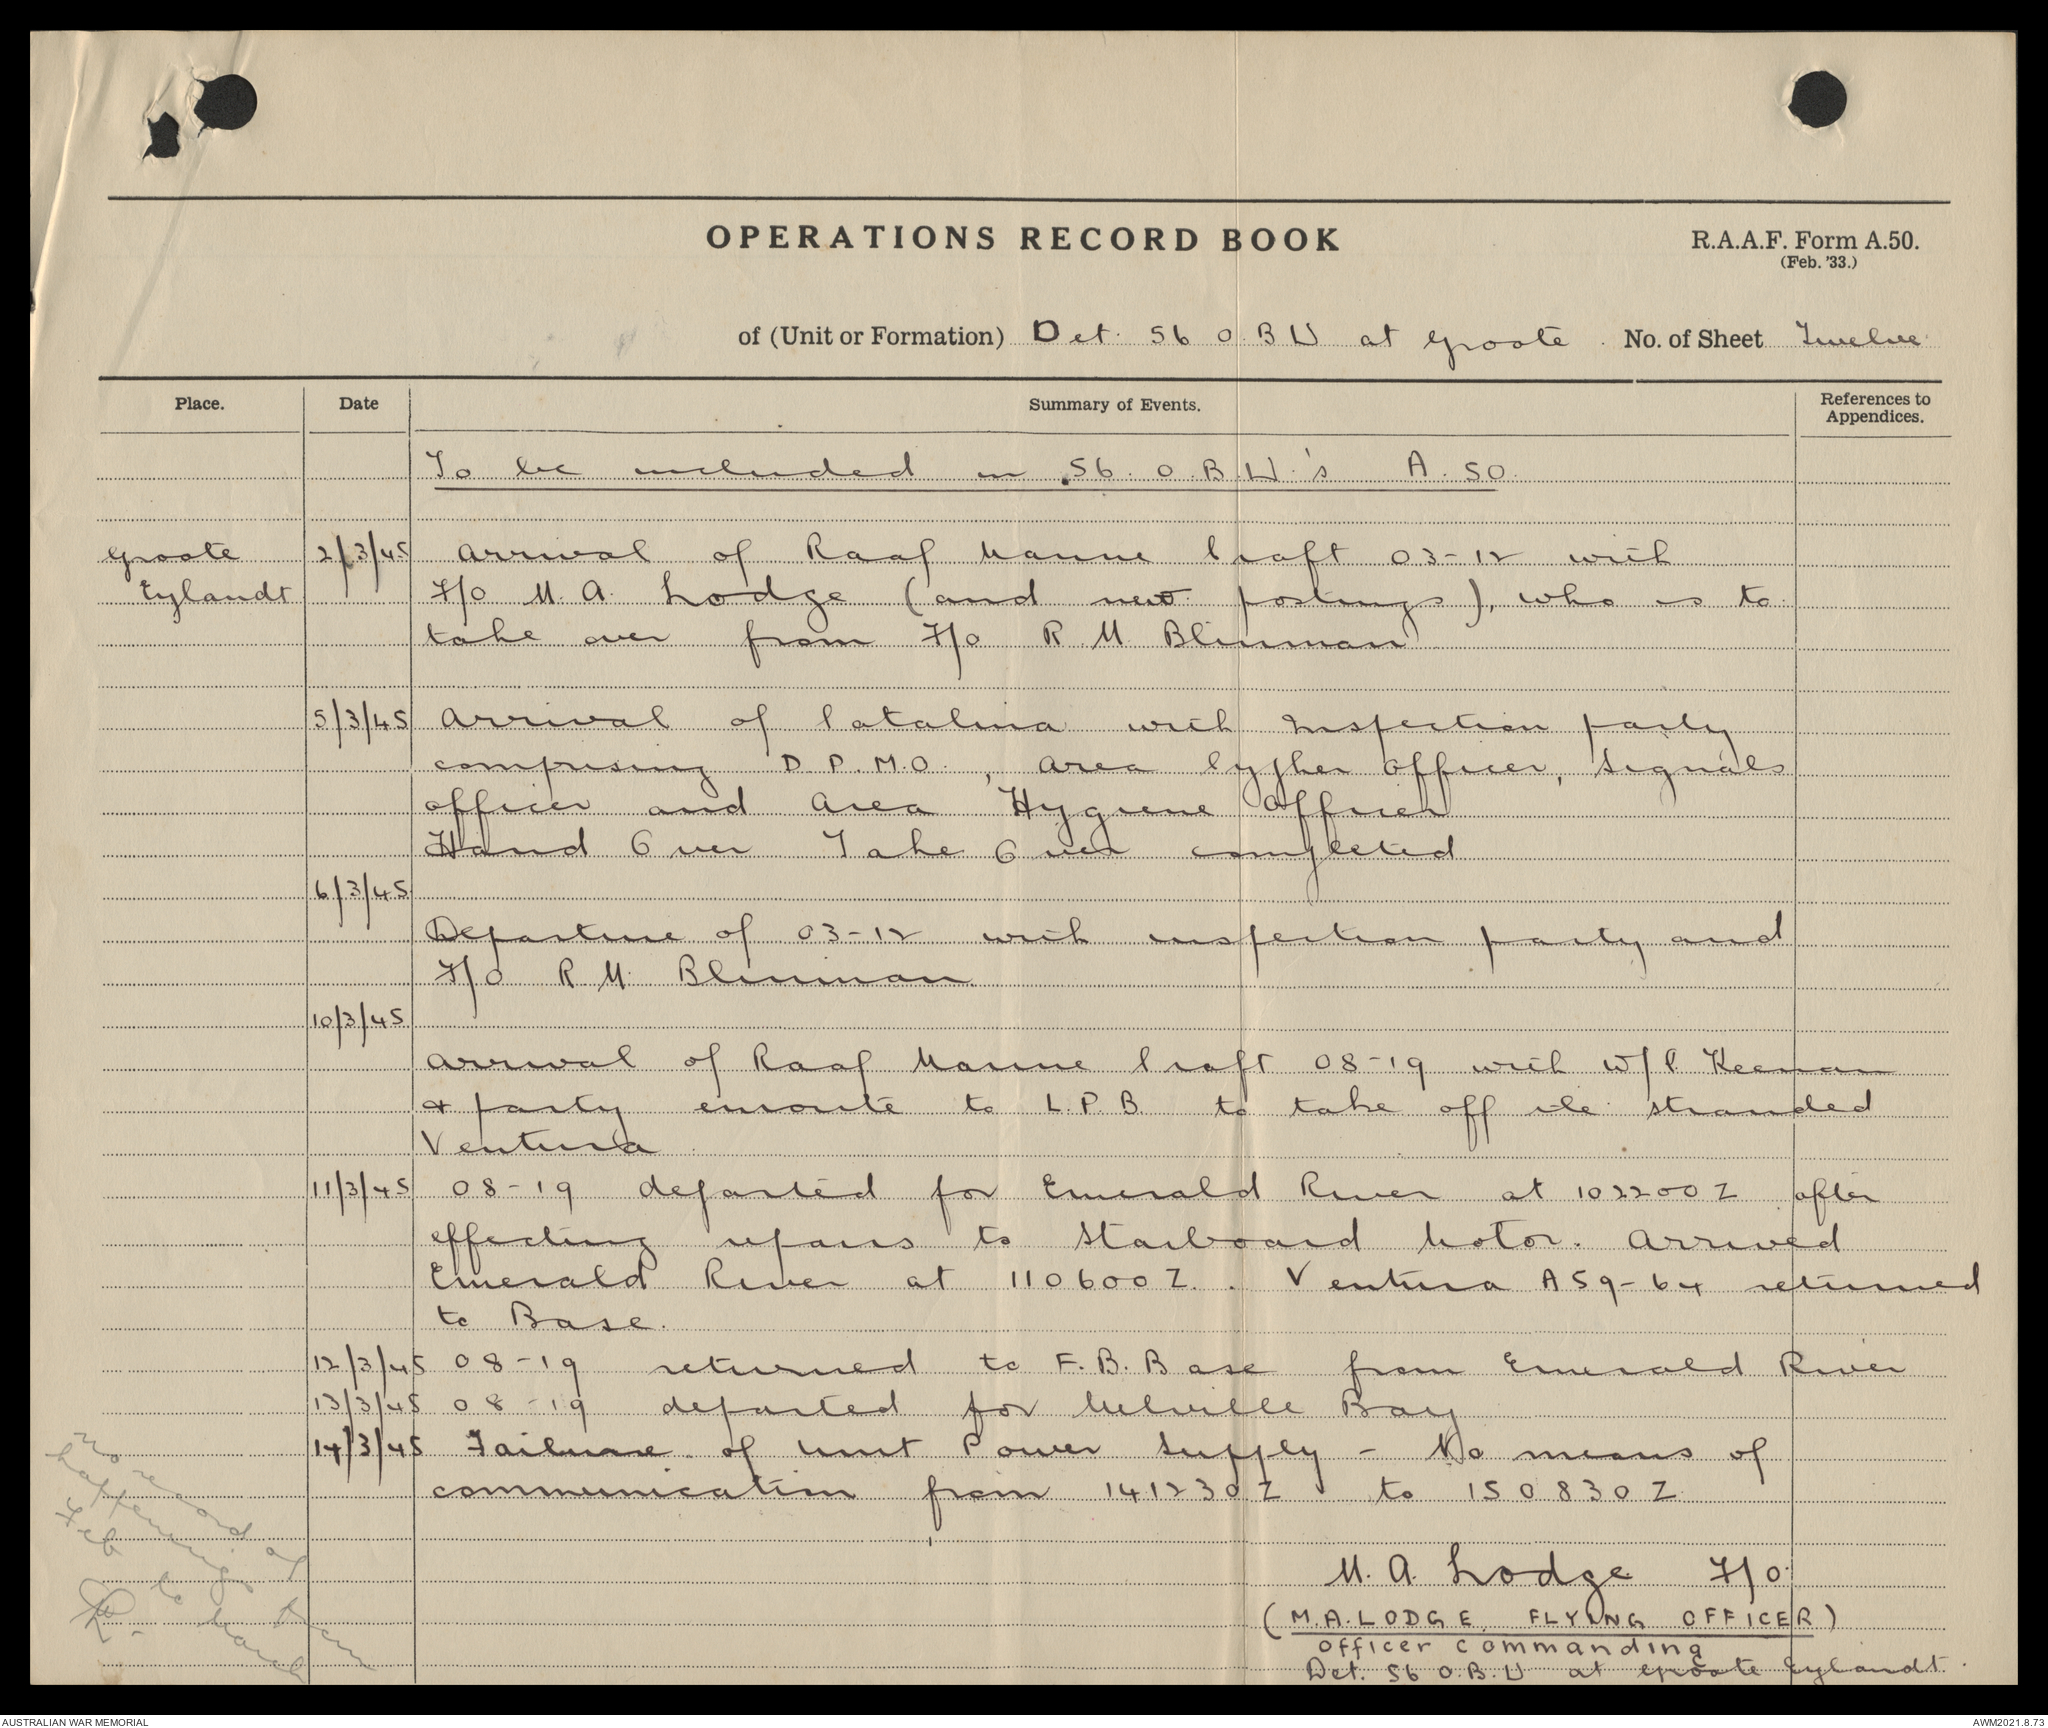 OPERATIONS RECORD BOOK
R.A.A.F. Form A.50.
(Feb. '33.)
of (Unit or Formation) Det. 56 O.B.U at Groote. No. of Sheet Twelve
Place. Date Summary of Events. References to Appendices.
To be included in 56. O.B.U.'s A.50.
Groote 2/3/45 Arrival of Raaf Marine Craft 03-12 with
Eylandt F/O M. A. Lodge (and new postings), who is to
take over from F/O R M Blinman
5/3/45 Arrival of Catalina with Inspection party
comprising D.P.M.O., Area Cypher Officer, Signals
officer and Area Hygiene Officer
Hand Over Take Over completed
6/3/45
Departure of 03-12 with inspection party and
F/O R. M. Blinman.
10/3/45
Arrival of Raaf Marine Craft 08-19 with W/C Keenan
& party enroute to L.P.B to take off stranded
Ventura
11/3/45 08-19 departed for Emerald River at 102200Z after
effecting repairs to Starboard Motor. Arrived
Emerald River at 110600Z. Ventura A59-64 returned
to Base.
12/3/45 08-19 returned to F.B.Base from Emerald River
13/3/45 08-19 departed for Melville Bay
14/3/45 Failure of Unit Power Supply - No means of
communication from 141230Z to 150830Z
M. A. Lodge F/O.
(M.A. LODGE FLYING OFFICER)
Officer Commanding
Det. 56 O.B.U at Groote Eylandt.
No record of
happenings from
Feb to March
AUSTRALIAN WAR MEMORIAL
AWM2021.8.73